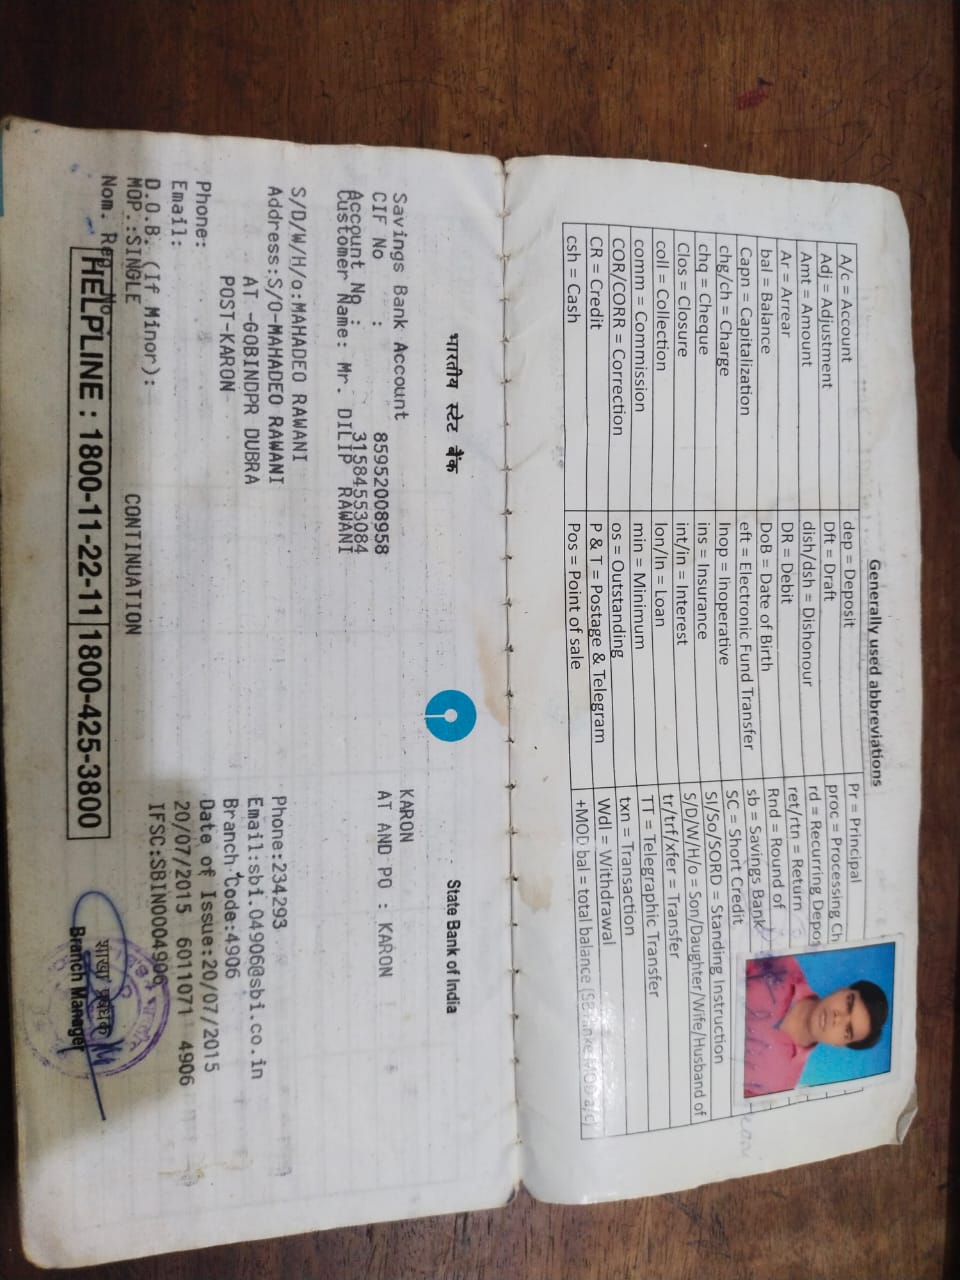 Generally used abbreviations
A/c = Account
Adj = Adjustment
Amt = Amount
Ar = Arrear
bal = Balance
Capn = Capitalization
chg/ch = Charge
chq = Cheque
Clos = Closure
coll = Collection
comm = Commission
COR/CORR = Correction
CR = Credit
csh = Cash
dep = Deposit
Dft = Draft
dish/dsh = Dishonour
DR = Debit
DoB = Date of Birth
eft = Electronic Fund Transfer
Inop = Inoperative
ins = Insurance
int/in = Interest
lon/ln = Loan
min = Minimum
os = Outstanding
P & T = Postage & Telegram
Pos = Point of sale
Pr = Principal
proc = Processing Ch
rd = Recurring Depo
ret/rtn = Return
Rnd = Round of
sb = Savings Bank
SC = Short Credit
SI/So/SORD = Standing Instruction
S/D/W/H/o = Son/Daughter/Wife/Husband of
tr/trf/xfer = Transfer
TT = Telegraphic Transfer
txn = Transaction
Wdl = Withdrawal
+MOD bal = total balance (SB+linked MOD a/c)
भारतीय स्टेट बैंक
State Bank of India
Savings Bank Account
CIF No : 85952008958
Account No : 31584553084
Customer Name: Mr. DILIP RAWANI
S/D/W/H/o:MAHADEO RAWANI
Address:S/O-MAHADEO RAWANI
AT -GOBINDPR DUBRA
POST-KARON
Phone:
Email:
D.O.B. (If Minor):
MOP.:SINGLE
CONTINUATION
Nom. Reg No:
KARON
AT AND PO : KARON
Phone:234293
Email:sbi.04906@sbi.co.in
Branch Code:4906
Date of Issue:20/07/2015
20/07/2015 6011071 4906
IFSC:SBIN0004906
HELPLINE : 1800-11-22-11 1800-425-3800
शाखा प्रबंधक
Branch Manager